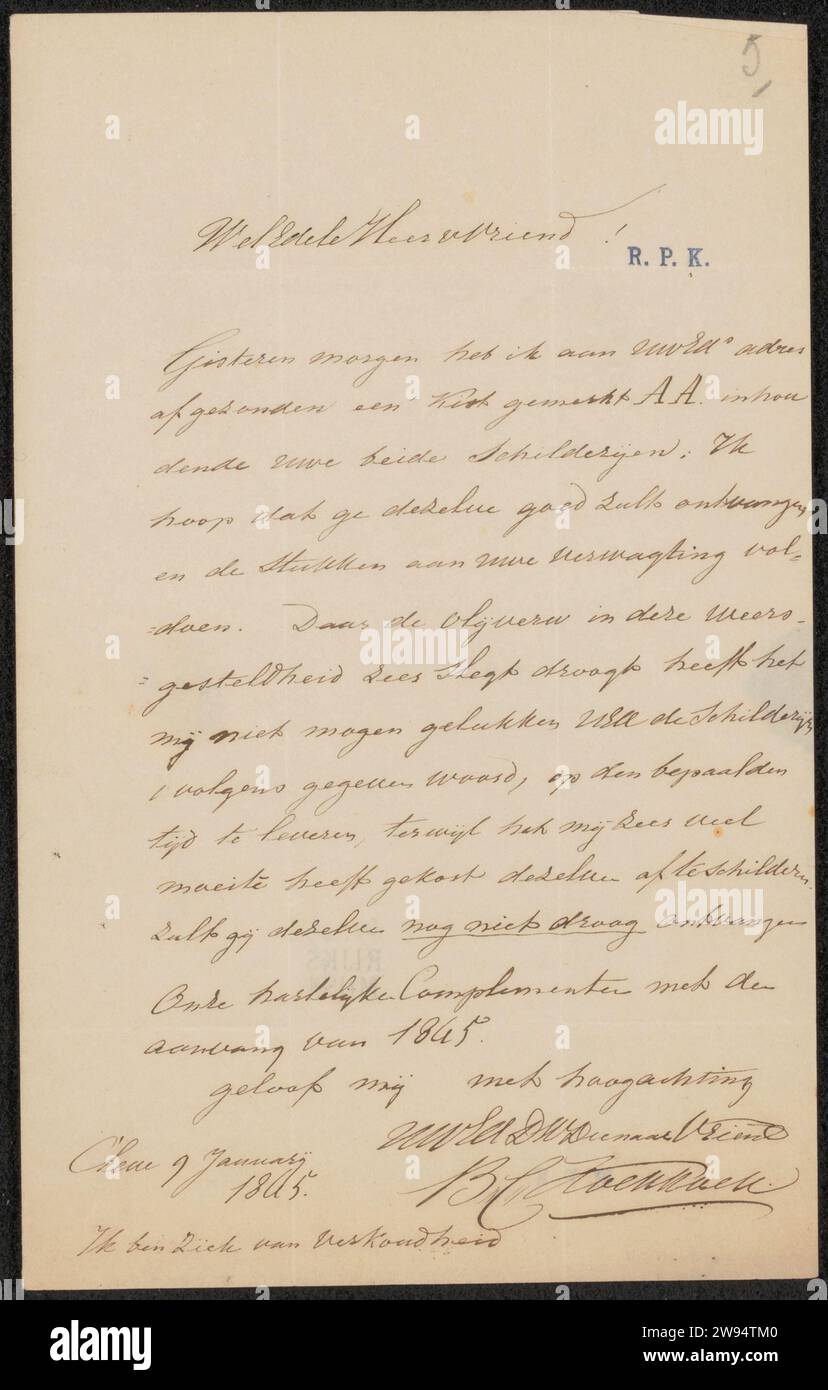 5,
WelEdele Heer & Vriend !
R. P. K.
Gisteren morgen heb ik aan UwEds adres
afgezonden een Kist gemerkt AA. inhou
dende uwe beide Schilderijen; Ik
hoop dat ge dezelve goed zult ontvangen,
en de Stukken aan uwe verwagting vol=
=doen. Daar de olijverw in deze weers-
=gesteldheid zeer slegt droogt heeft het
mij niet mogen gelukken UEd de Schilderijen
volgens gegeven woord, op den bepaalden
tijd te leveren, terwijl het mij zeer veel
moeite heeft gekost dezelve afteschilderen.
zult gij dezelve nog niet droog ontvangen
Onze hartelijke Complimenten met den
aanvang van 1845.
geloof mij met hoogachting
UwEd DW Dienaar & Vriend
Cleve 9 Januarij
1845.
B C Koekkoek.
Ik ben ziek van verkoudheid
RIJKS
alamy
alamy
Image ID: 2W94TM0
www.alamy.com